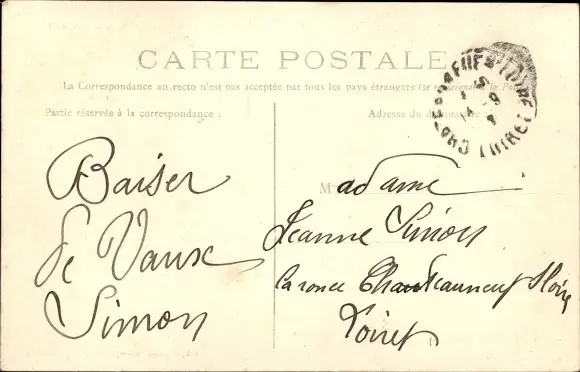 CARTE POSTALE
La Correspondance au recto n'est pas acceptée par tous les pays étrangers (se renseigner à la Poste)
Partie réservée à la correspondance :
Adresse du destinataire
Baiser
de Vaux
Simon
Madame
Jeanne Simon
la ronce Chateauneuf s Loire
Loiret